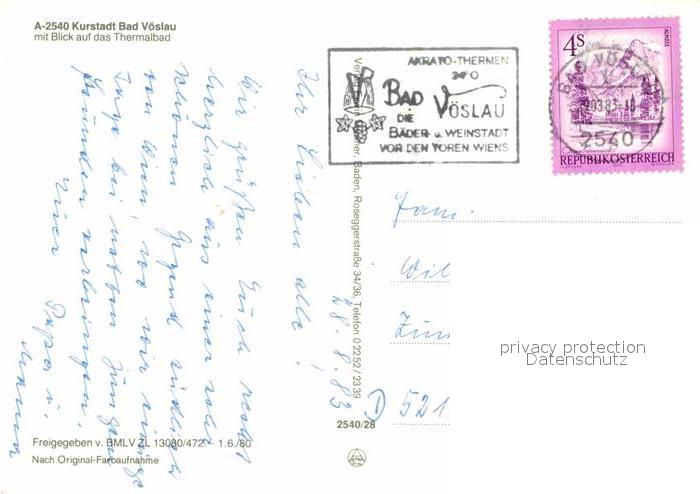 A-2540 Kurstadt Bad Vöslau
mit Blick auf das Thermalbad
AKRATO-THERMEN
24° C
BAD VÖSLAU
DIE
BÄDER- u. WEINSTADT
VOR DEN TOREN WIENS
4S
ALMSEE
REPUBLIK ÖSTERREICH
BAD VÖSLAU
2540
Baden, Roseggerstraße 34/36, Telefon 02252/2339
28.8.83
Ihr Lieben alle!
Wir grüßen Euch recht
herzlich aus einer sehr
schönen Gegend südlich
von Wien, wo wir einige
Tage bei netten
Freunden verbringen.
Eure
Papa u.
Mama
Fam.
Wil
Zun
D 521
privacy protection
Datenschutz
2540/28
Freigegeben v. BMLV ZL 13080/472 - 1.6./80
Nach Original-Farbaufnahme